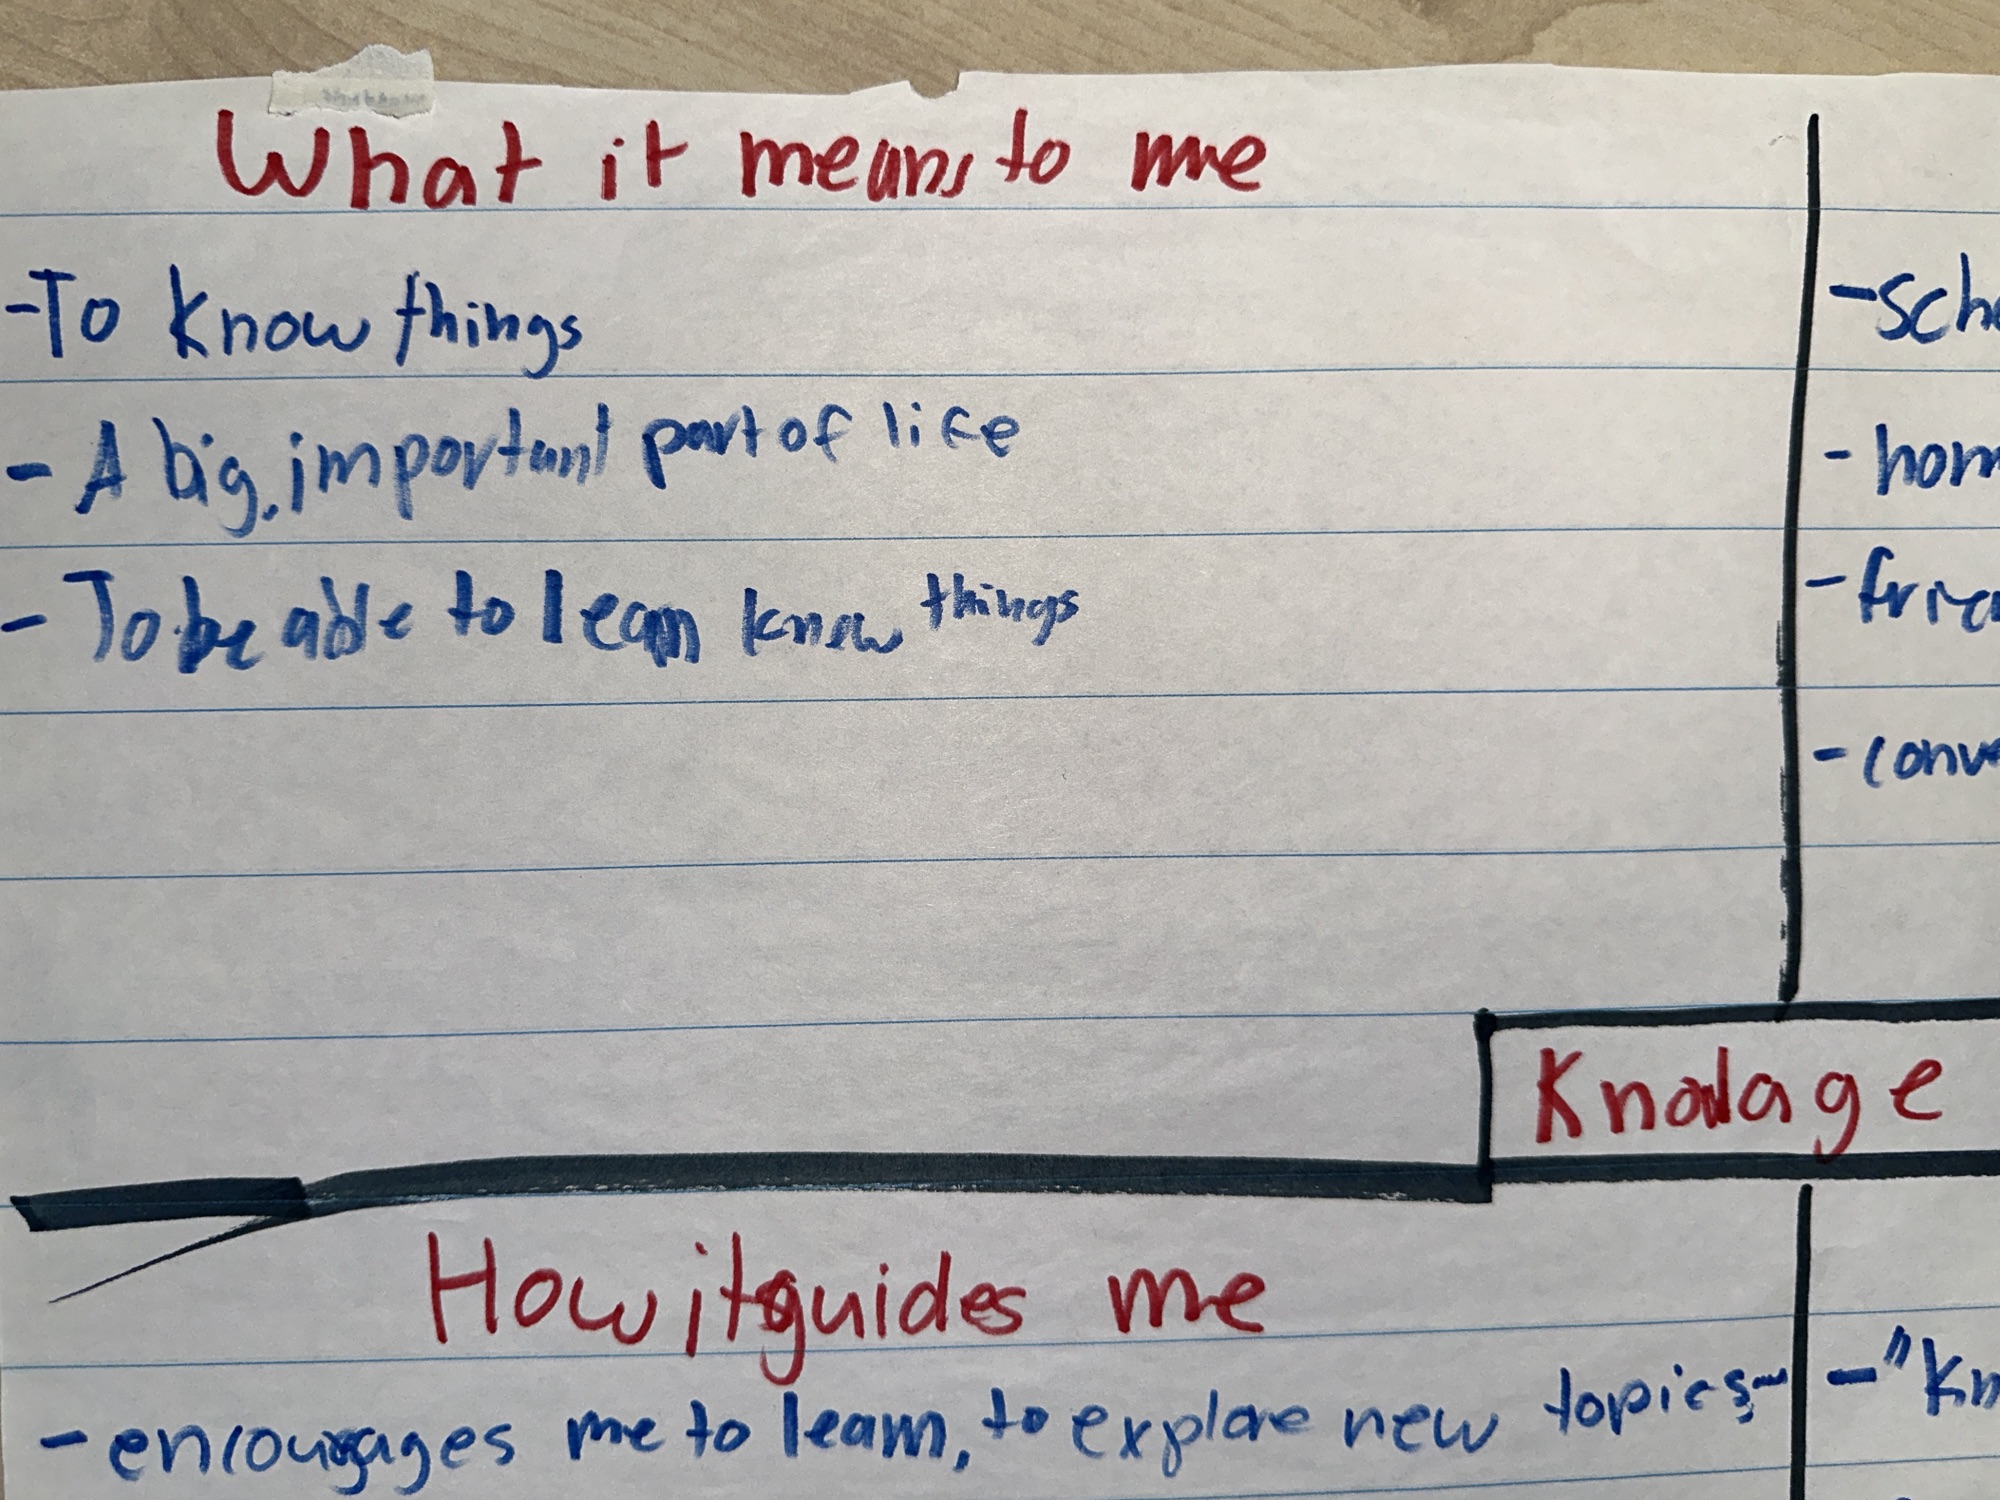 What it means to me
-To know things
- A big, important part of life
- To be able to learn know things
-Scho
- hom
- frien
- conve
Knowlage
How it guides me
- encourages me to learn, to explore new topics
- "Kn